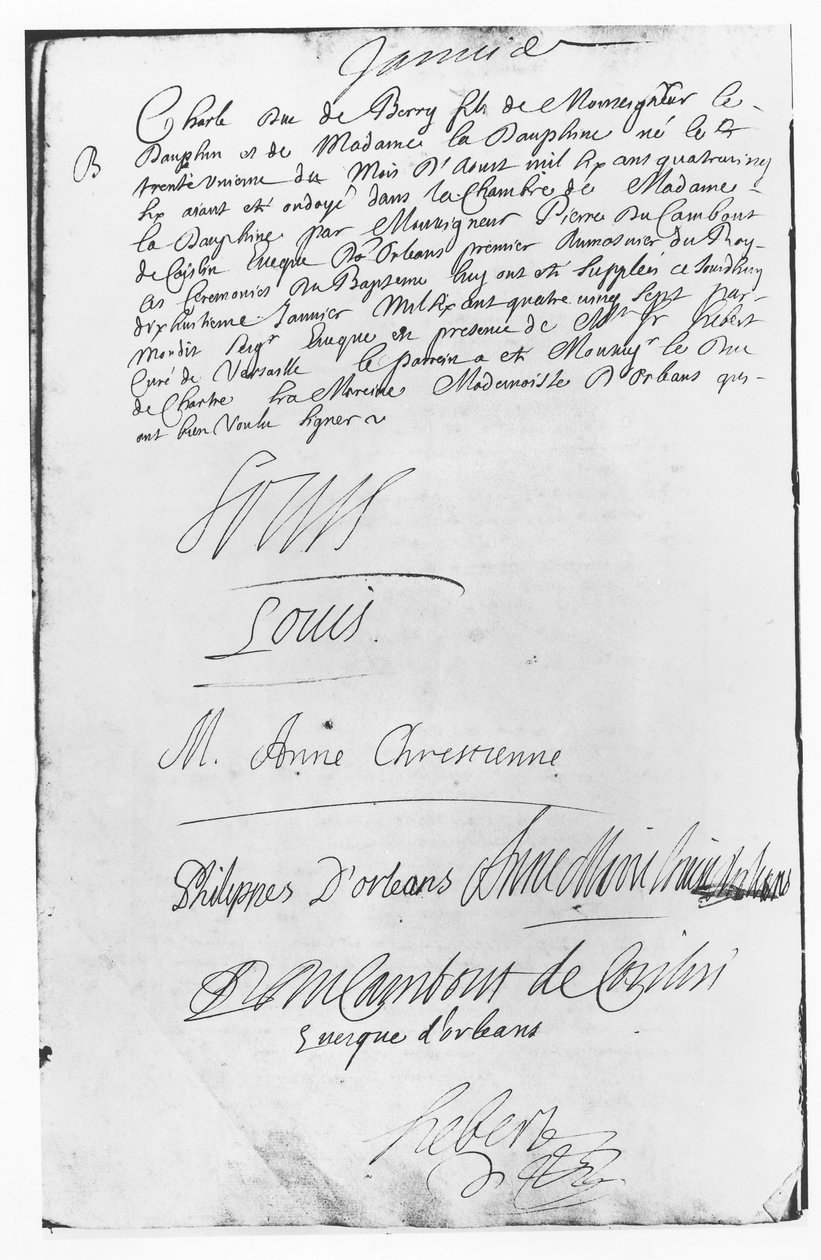 Janvier
Charle Duc de Berry fils de Monseigneur le
B
Dauphin et de Madame la Dauphine né le
trente unieme du Mois D'Aoust mil six cens quatrevingt
six aiant eté ondoyé dans la Chambre de Madame
la Dauphine par Monseigneur Pierre Du Cambout
de Coislin Eveque D'Orleans premier Aumosnier du Roy
Les Ceremonies Du Bapteme luy ont eté Suppleés ce Jourdhuy
dixhuitieme Janvier Mil six cent quatre vingt Sept par
mondit Seigr Eveque en presence de Mr hebert
Curé de Versaille le parrein a eté Monseigr le Duc
de Chartre La Mareine Mademoiselle D'Orleans qui
ont bien Voulu signer
Louis
Louis.
M. Anne Chrestienne
Philippes D'orleans Anne Marie Louise d'orleans
P Du Cambout de Coislin
Euesque d'orleans
hebert